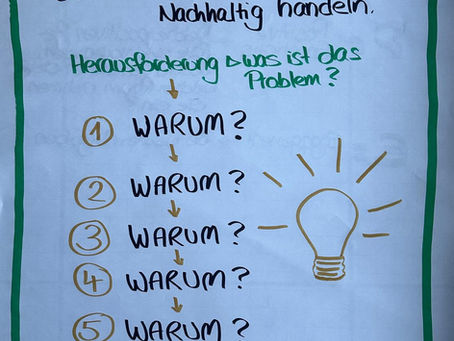 Nachhaltig handeln.
Herausforderung ▷ was ist das
Problem?
1 WARUM?
2 WARUM?
3 WARUM?
4 WARUM?
5 WARUM?